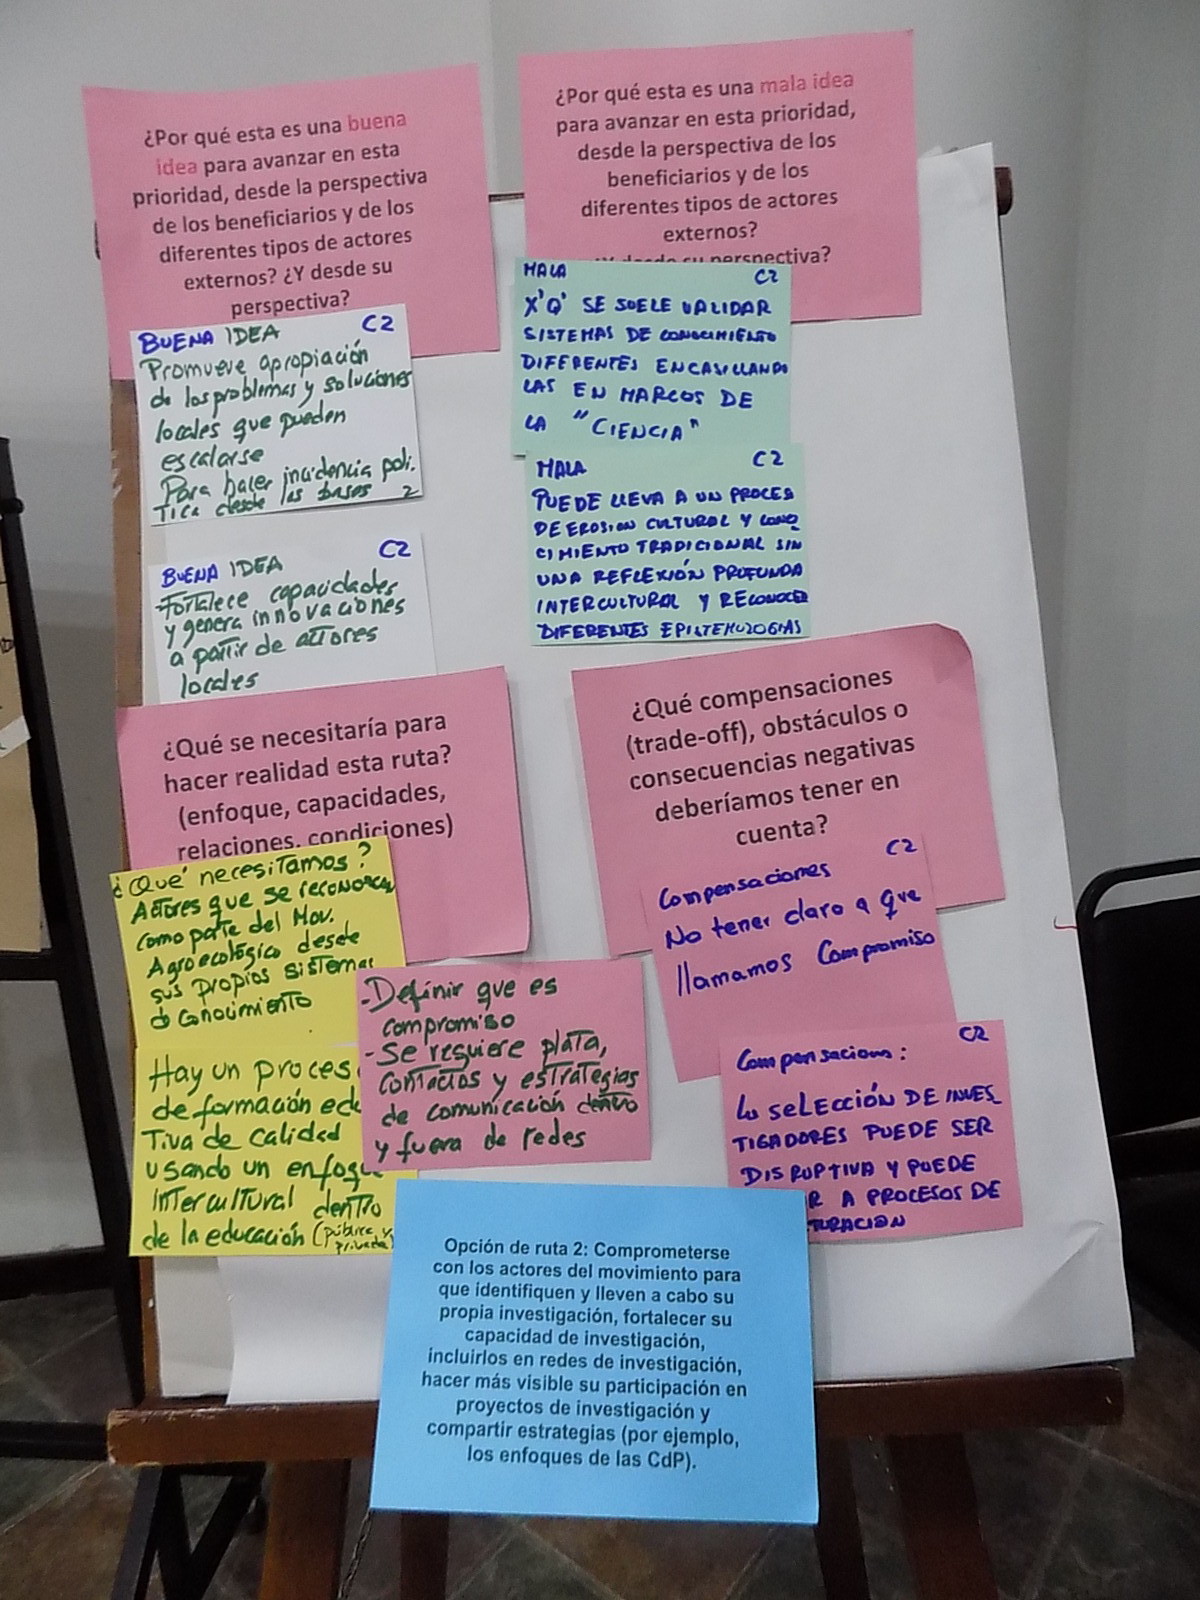 ¿Por qué esta es una buena
idea para avanzar en esta
prioridad, desde la perspectiva
de los beneficiarios y de los
diferentes tipos de actores
externos? ¿Y desde su
perspectiva?
BUENA IDEA C2
Promueve apropiación
de los problemas y soluciones
locales que pueden
escalarse
Para hacer incidencia polí.
Tica desde las bases
BUENA IDEA C2
Fortalece capacidades
y genera innovaciones
a partir de actores
locales
¿Por qué esta es una mala idea
para avanzar en esta prioridad,
desde la perspectiva de los
beneficiarios y de los
diferentes tipos de actores
externos?
desde su perspectiva?
MALA C2
X'Q' SE SUELE VALIDAR
SISTEMAS DE CONOCIMIENTO
DIFERENTES ENCASILLANDO
LAS EN MARCOS DE
LA "CIENCIA"
MALA C2
PUEDE LLEVA A UN PROCES
DE EROSION CULTURAL Y CONO
CIMIENTO TRADICIONAL SIN
UNA REFLEXIÓN PROFUNDA
INTERCULTURAL Y RECONOCER
DIFERENTES EPISTEMOLOGIAS
¿Qué se necesitaría para
hacer realidad esta ruta?
(enfoque, capacidades,
relaciones, condiciones)
¿Qué necesitamos?
Actores que se reconozcan
como parte del Mov.
Agroecológico desde
sus propios sistemas
de conocimiento
Hay un proces
de formación edu
Tiva de calidad
usando un enfoque
Intercultural dentro
de la educación (pública y
privada)
-Definir que es
compromiso
-Se requiere plata,
contactos y estrategias
de comunicación dentro
y fuera de redes
¿Qué compensaciones
(trade-off), obstáculos o
consecuencias negativas
deberíamos tener en
cuenta?
Compensaciones C2
No tener claro a que
llamamos Compromiso
C2
Compensacions:
La SELECCIÓN DE INVES_
TIGADORES PUEDE SER
DISRUPTIVA Y PUEDE
R A PROCESOS DE
TURACION
Opción de ruta 2: Comprometerse
con los actores del movimiento para
que identifiquen y lleven a cabo su
propia investigación, fortalecer su
capacidad de investigación,
incluirlos en redes de investigación,
hacer más visible su participación en
proyectos de investigación y
compartir estrategias (por ejemplo,
los enfoques de las CdP).